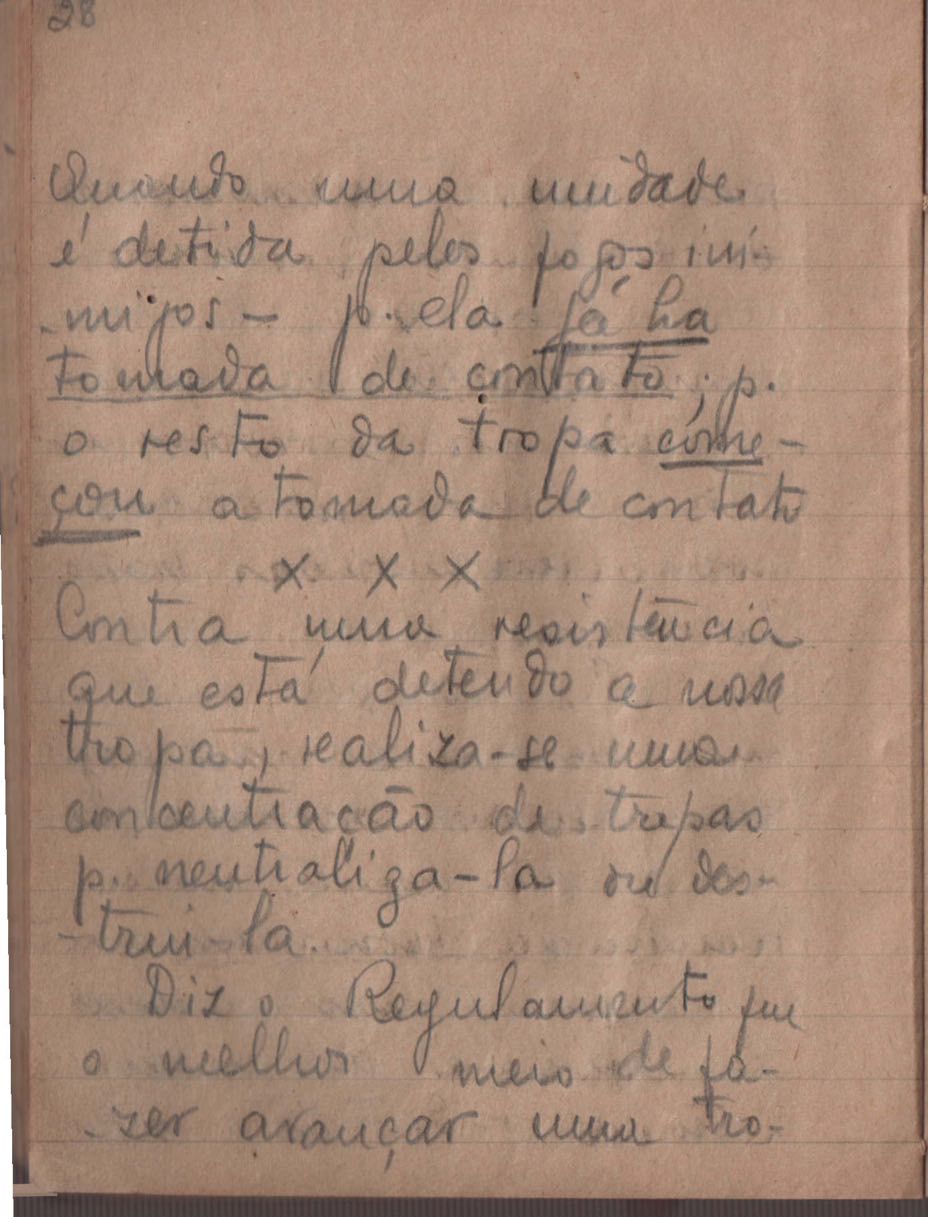 28
Quando uma unidade
é detida pelos fogos ini-
migos - p. ela já ha
tomada de contato; p.
o resto da tropa come-
çou a tomada de contato
x x x
Contra uma resistência
que está detendo a nossa
tropa, realiza-se uma
concentração de tropas
p. neutraliza-la ou des-
-trui-la.
Diz o Regulamento que
o melhor meio de fa-
-zer avançar uma tro-